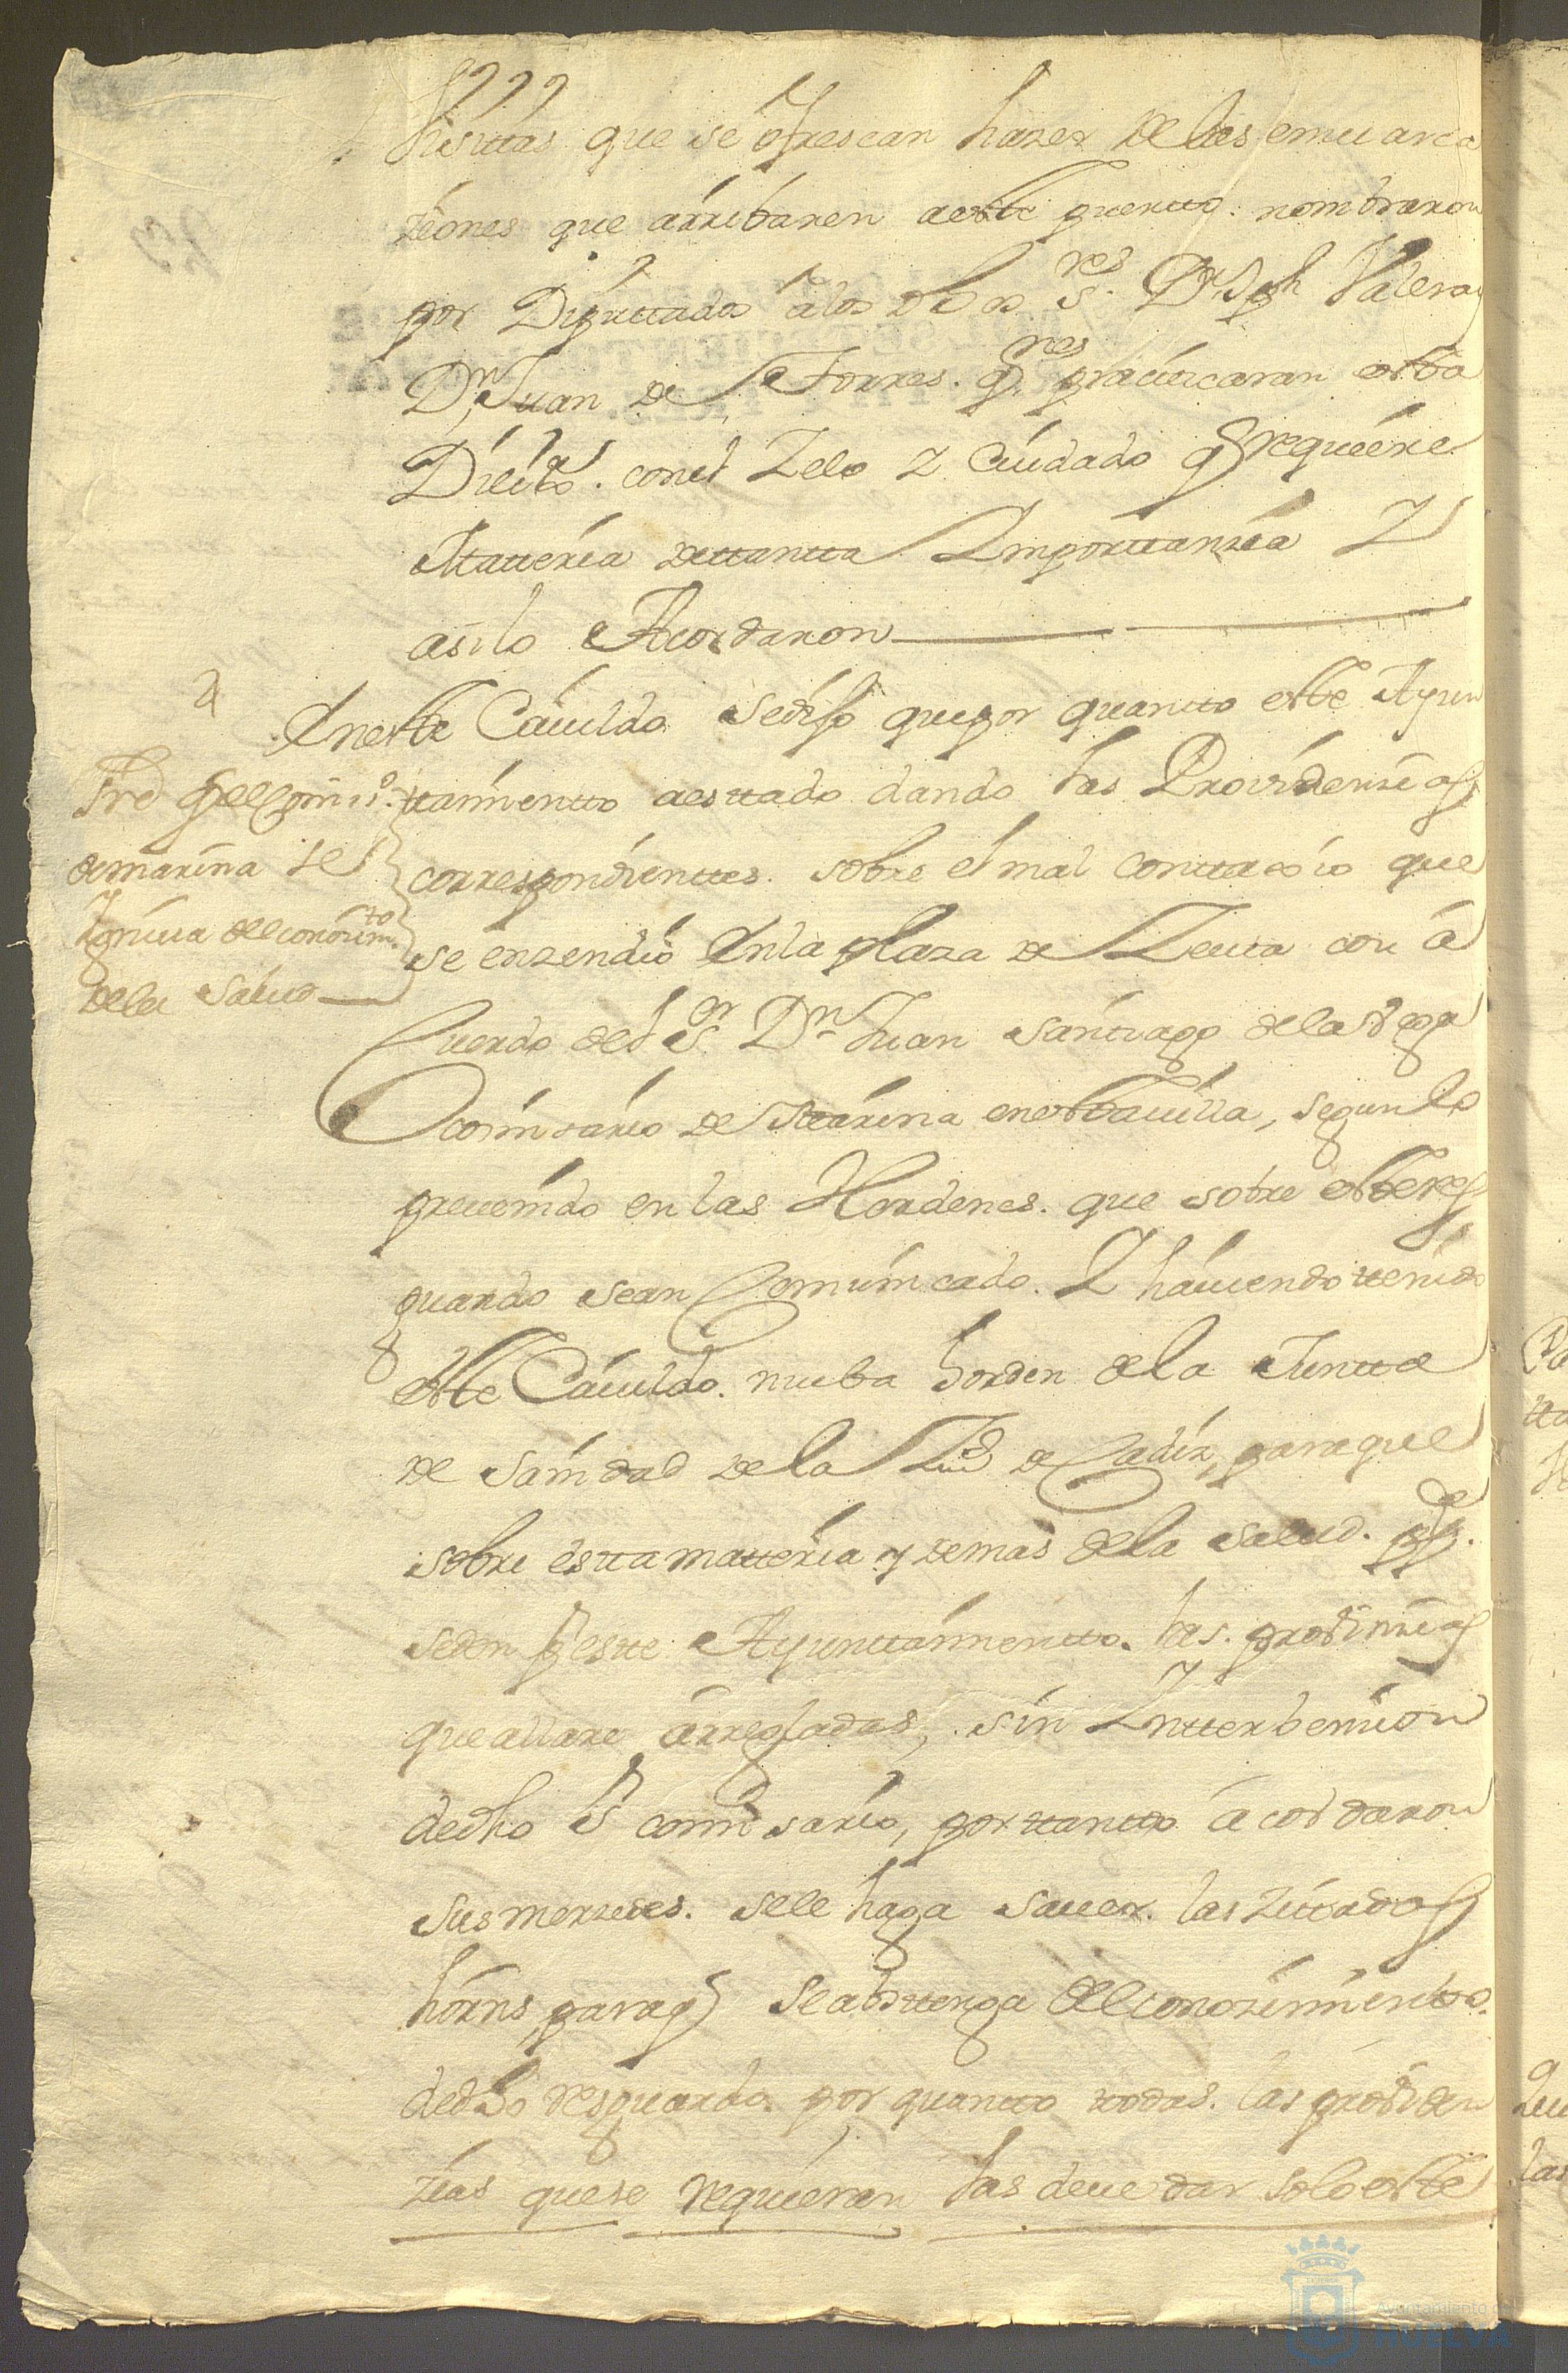 Visittas que se ofrescan hazer de las emuarca
ziones que arribaren a este puertto. nombraron
por Diputtados a los dhos Sres. Dn. Joph Valera y
Dn. Juan de Torres. qnes practicaran esta
Dilixa. con el Zelo y Cuidado q requiere
Matteria de ttantta Importtanzia Y
asi lo Acordaron
En este Cavildo se dijo que por quantto este Ayun
ttamientto a esttado dando las Providenzias
correspondienttes. sobre el mal conttaxio que
se enzendio en la plaza de Zeuta con a
Cuerdo del Sor. Dn. Juan Santiago de la Vega
Comisario de Marina en esta villa, segun lo
prevenido en las Hordenes. que sobre este res
guardo sean Comunicado. Y haviendo tenido
este Cavildo. nueba horden de la Juntta
de Sanidad de la Ziud de Cadiz, para que
sobre estta matteria y demas de la Salud. ppca.
se den pr estte Ayunttamientto. las. probidnzias
que allare arregladas, sin Intterbenzion
de dho Sr comisario, por ttantto acordaron
sus merzedes. se le haga saver. las zittadas
horns, para q se abstenga del conozimiento.
de dho resguardo. por quantto todas. las probiden
zias que se requieran las deve dar solo este
del comiso.
de marina se
Ynivia del conozimto
de la Salud
Ayuntamiento de
HUELVA